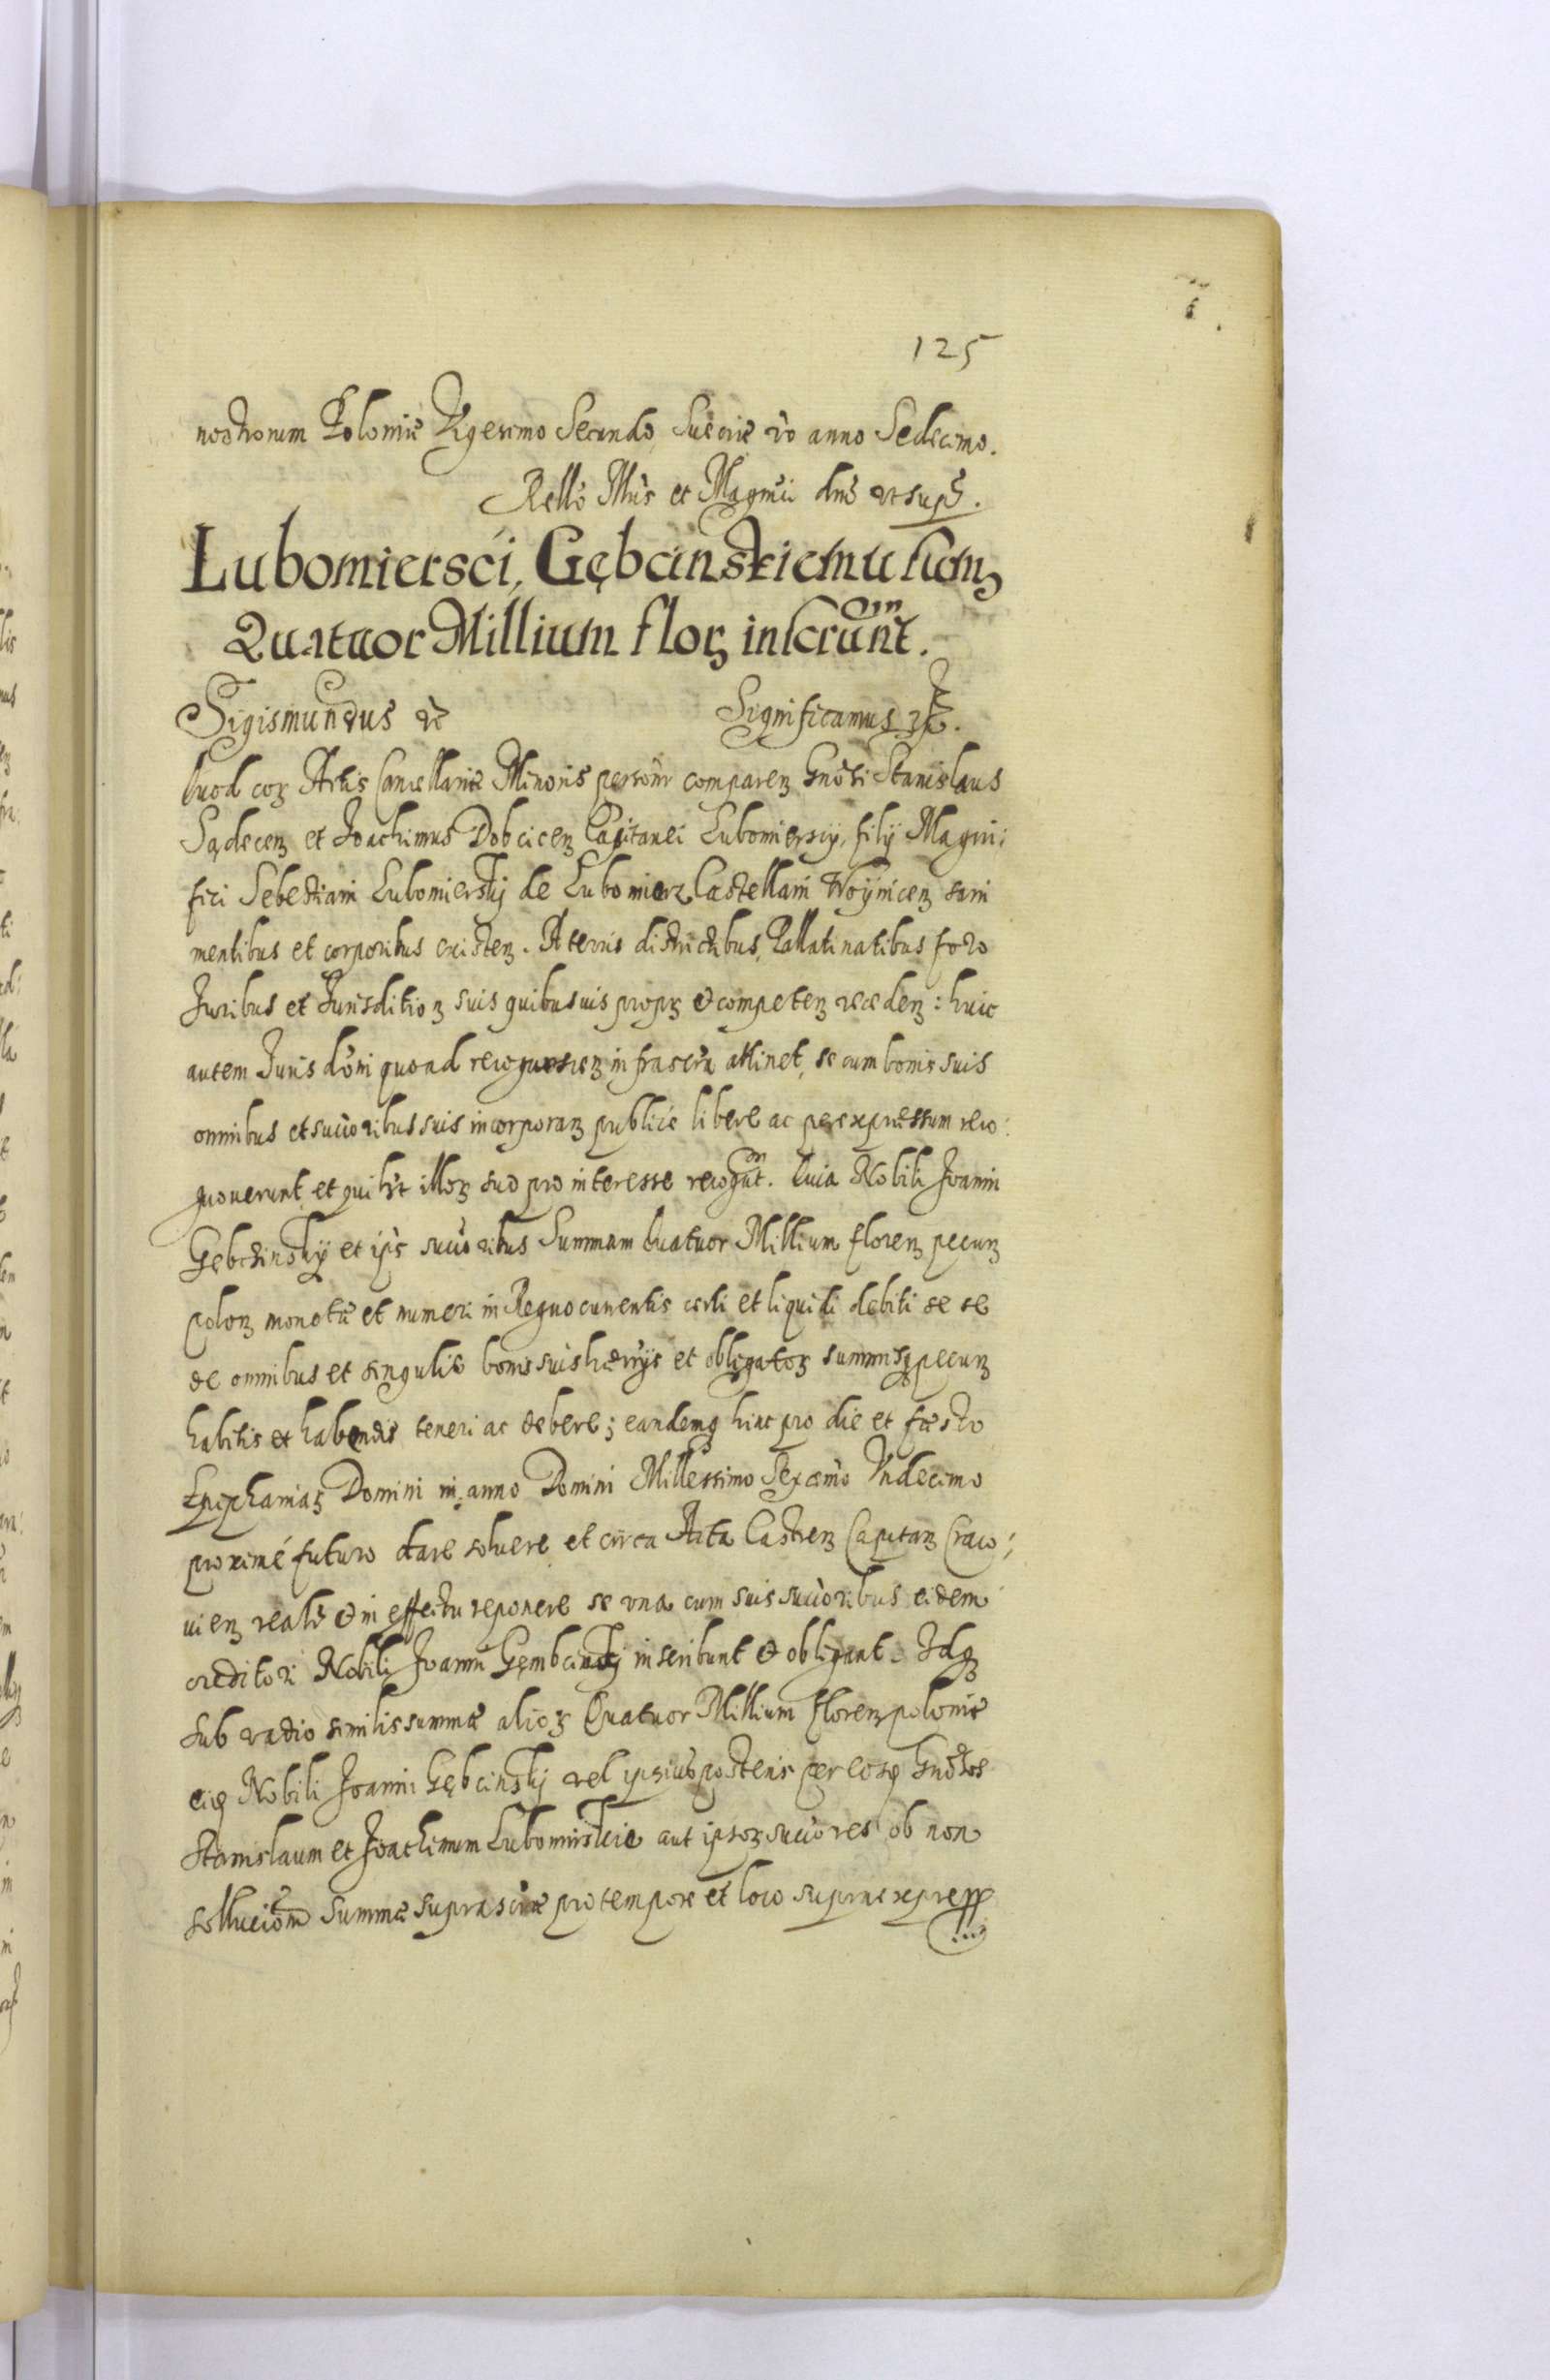 125
nostrorum Poloniæ Vigesimo Secundo, Sueciæ vo anno Sedecimo.
Rello Illris et Magnci dni ut supra.
Lubomiersci, Gębcinskiemu sum
Quatuor Millium floꝝ inscribunt.
Sigismundus etc Significamus etc.
Quod coꝝ Actis Cancellariæ Minoris persolr comparenꝫ Gnosi Stanislaus
Sądecenꝫ et Joachimus Dobcicenꝫ Capitanei Lubomierscij, filij Magni:
fici Sebestiani Lubomierskij de Lubomierz Castellani Woÿnicenꝫ sani
mentibus et corporibus existenꝫ. A terris districtibus, Pallatinatibus foro
Juribus et Jurisditioꝫ suis quibusuis proprꝫ et competenꝫ recedenꝫ: huic
autem Jurisdoni quoad recognoscenꝫ infrascra attinet, se cum bonis suis
omnibus et succoribus suis incorporanꝫ publice libere ac per expressum reco:
gnouerunt, et quilibet illoꝝ suo pro interesse recognt. Quia Nobili Joanni
Gębczinskij et ips succoribus Summam Quatuor Millium florenꝫ pecunꝫ
polonꝫ monetæ et numeri in Regno currentis certi et liquidi debiti se se
de omnibus et singulis bonis suis hærrijs et obligatoꝫ summisqꝫ pecunꝫ
habitis et habendis teneri ac debere; eandemqꝫ hinc pro die et fœsto
Epiphaniaꝝ Domini in anno Domini Millessimo Sexcemo Vndecimo
proximé futuro dare soluere et circa Acta Castrenꝫ Capitanꝫ Craco:
uienꝫ realr et in effectu reponere se vna cum suis succoribus eidem
creditori Nobili Joanni Gęmbcinskij inscribunt et obligant. Idqꝫ
sub vadio similis summæ alioꝝ Quatuor Millium florenꝫ poloniæ
eiqꝫ Nobili Joanni Gębcinskij vel ipsius posteris per eosqꝫ Gnosos
Stanislaum et Joachimum Lubomirskie aut ipsoꝝ succores ob non
sollucionem summæ suprascræ pro tempore et loco supra express